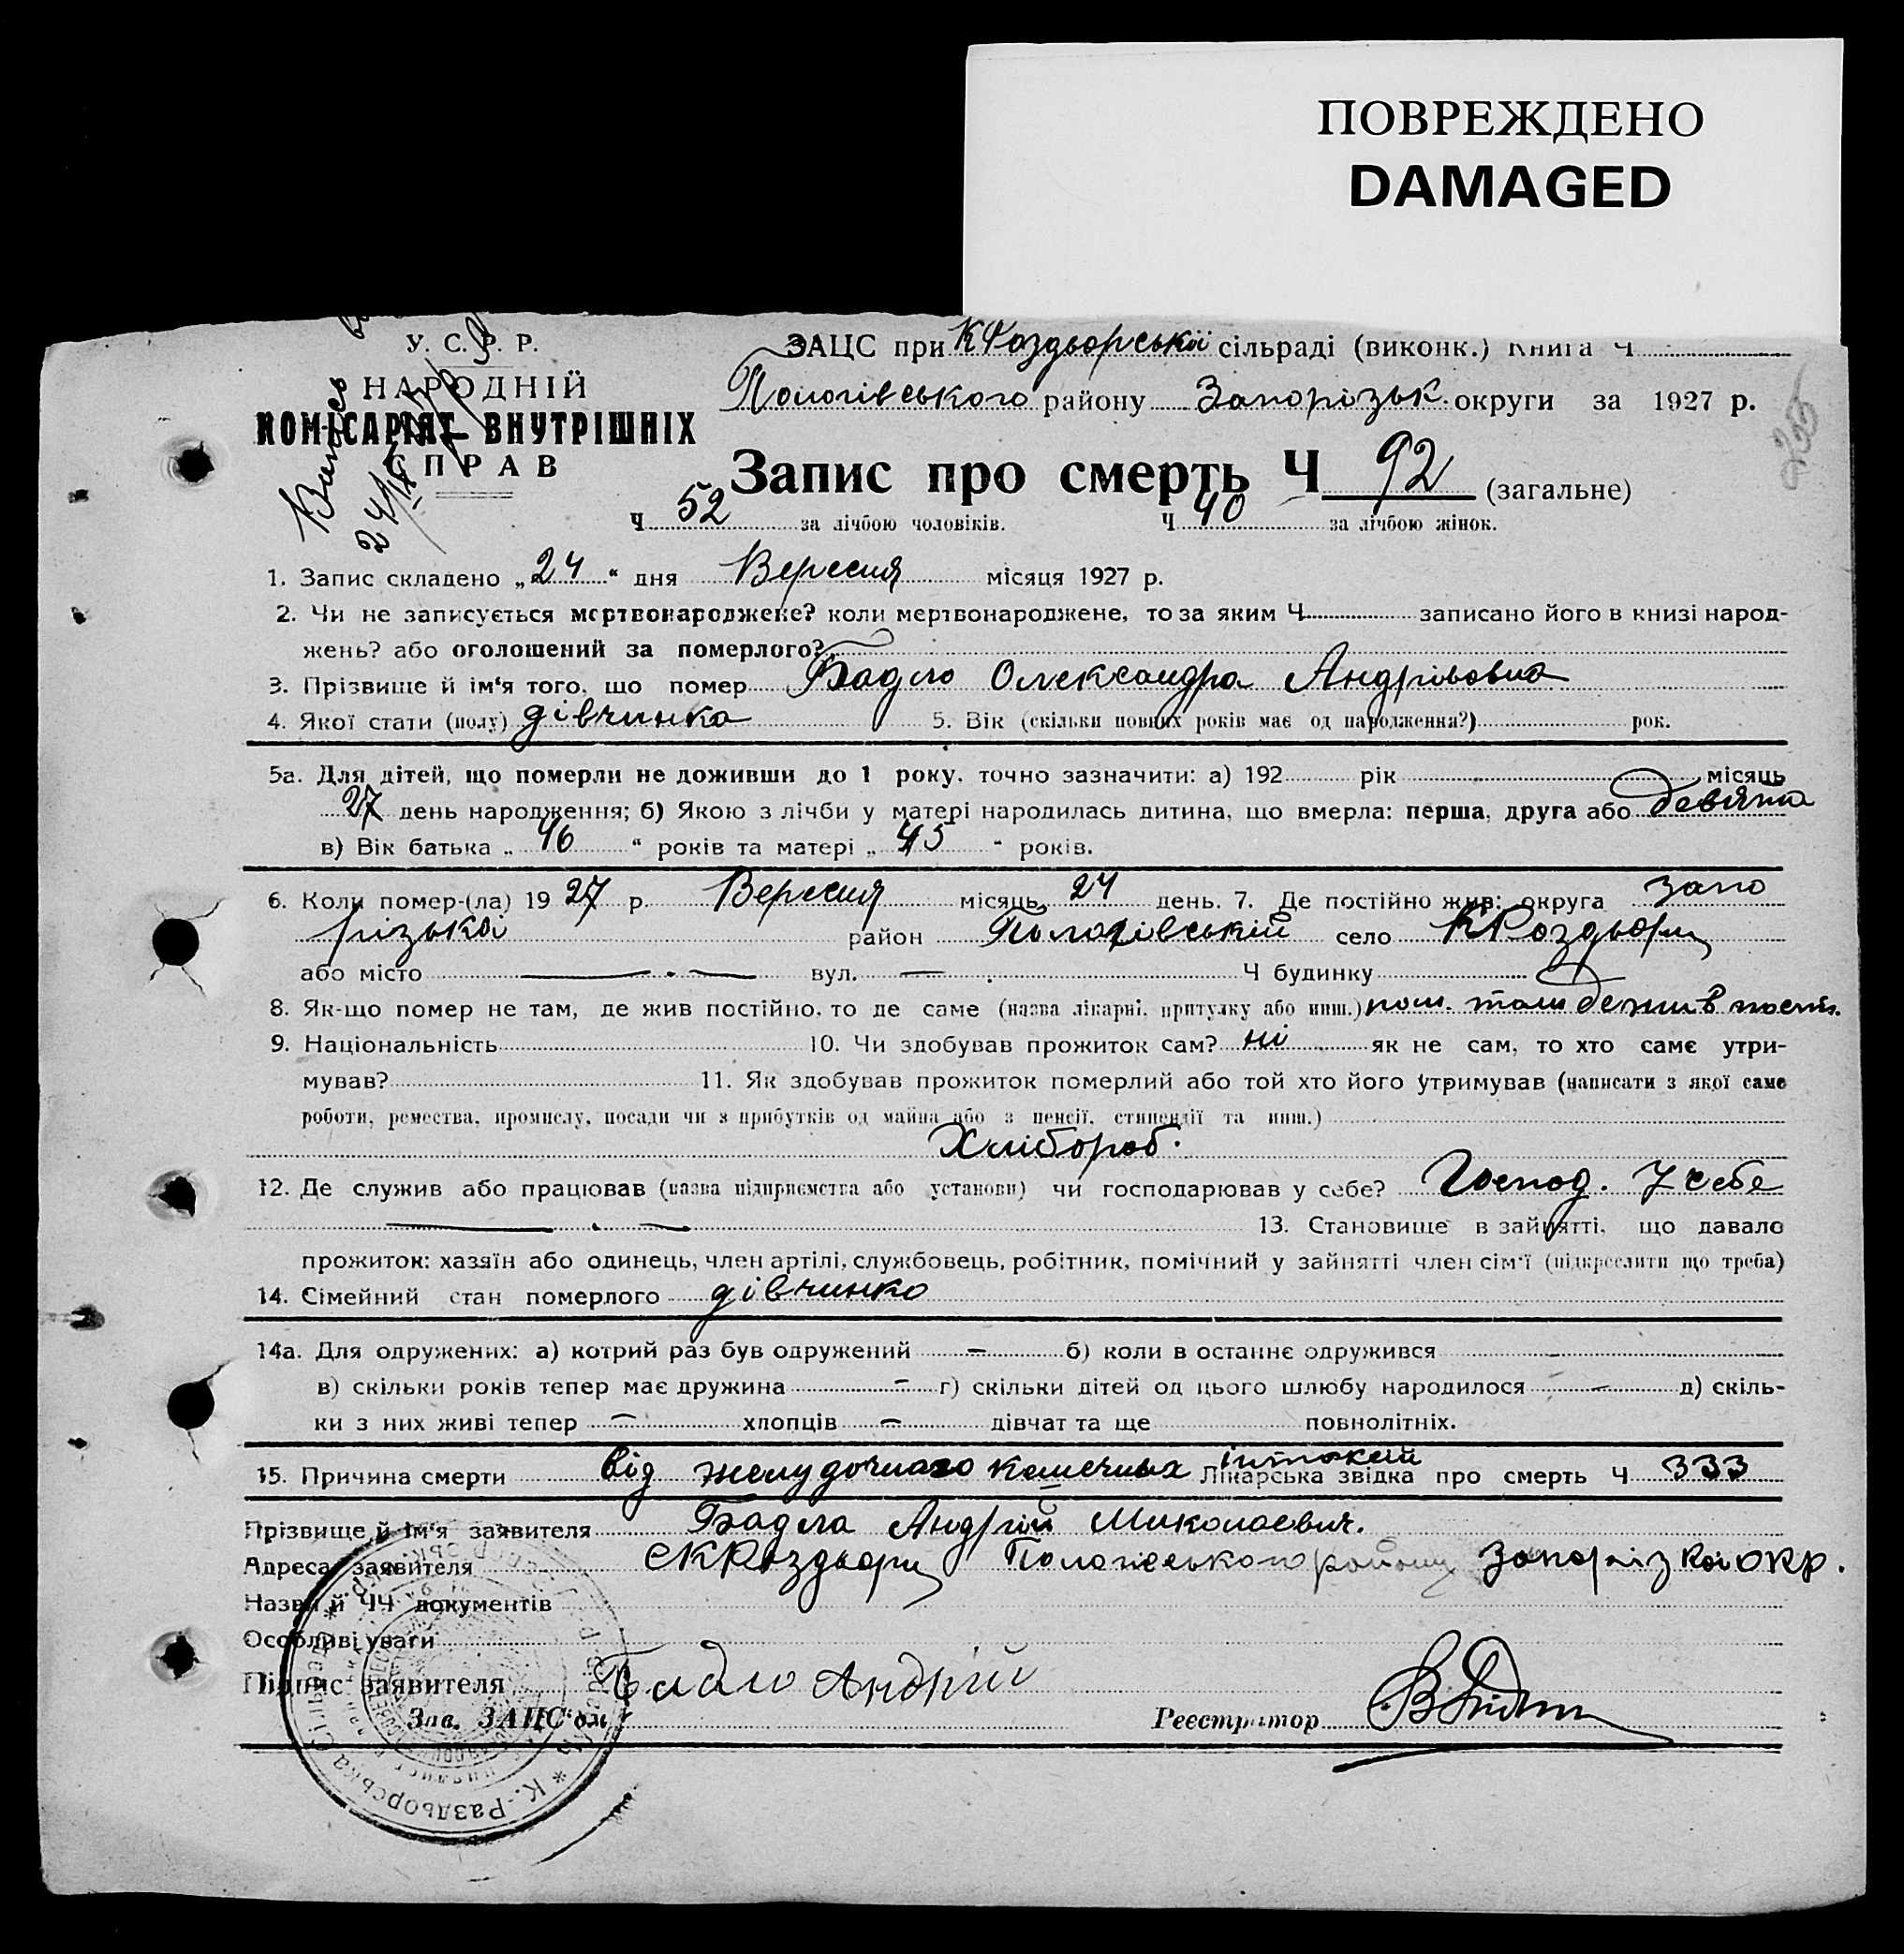 ПОВРЕЖДЕНО
DAMAGED
У. С. Р. Р.
НАРОДНІЙ
КОМІСАРІЯТ ВНУТРІШНІХ
СПРАВ
ЗАЦС при КРоздьорській сільраді (виконк.) Книга Ч
Пологівського району Запорізьк. округи за 1927 р.
Запис про смерть Ч 92 (загальне)
Ч 52 за лічбою чоловіків. Ч 40 за лічбою жінок.
1. Запис складено „24“ дня Вересня місяця 1927 р.
2. Чи не записується мертвонароджене? коли мертвонароджене, то за яким Ч записано його в книзі народ-
жень? або оголошений за померлого?
3. Прізвище й ім‘я того, що помер Бадло Олександра Андріівовна
4. Якої стати (полу) дівчинка 5. Вік (скільки повних років має од народження?) рок.
5а. Для дітей, що померли не доживши до 1 року, точно зазначити: а) 192 рік місяць
27 день народження; б) Якою з лічби у матері народилась дитина, що вмерла: перша, друга або девята
в) Вік батька „ 46 “ років та матері „ 45 “ років.
6. Коли помер-(ла) 19 27 р. Вересня місяць 24 день. 7. Де постійно жив: округа Запо
різькой район Пологівській село КРоздьори
або місто — . — вул. — . Ч будинку
8. Як-що помер не там, де жив постійно, то де саме (назва лікарні, притулку або инш.) пом. там де жив пости.
9. Національність 10. Чи здобував прожиток сам? ні як не сам, то хто саме утри-
мував? 11. Як здобував прожиток померлий або той хто його утримував (написати з якої саме
роботи, ремества, промислу, посади чи з прибутків од майна або з пенсії, стипендії та инш.)
Хлібороб.
12. Де служив або працював (назва підприємства або установи) чи господарював у себе? Господ. У себе
— . — 13. Становище в зайнятті, що давало
прожиток: хазяїн або одинець, член артілі, службовець, робітник, помічний у зайнятті член сім‘ї (підкреслити що треба)
14. Сімейний стан померлого дівчинко
14а. Для одружених: а) котрий раз був одружений — б) коли в останнє одружився —
в) скільки років тепер має дружина — г) скільки дітей од цього шлюбу народилося — д) скіль-
ки з них живі тепер — хлопців — дівчат та ще повнолітніх.
15. Причина смерти від желудочнаго кешечных Лікарська звідка про смерть Ч 333
Прізвище й ім‘я заявителя Бадла Андрій Миколаевич.
Адреса заявителя с КРоздьори Пологівського району Запорізкой окр.
Назви й ЧЧ документів
Особливі уваги
Підпис заявителя Бадло Андрій
Зав. ЗАЦС‘ом Реєстратор
* К.-Раздьорська Сільрада *